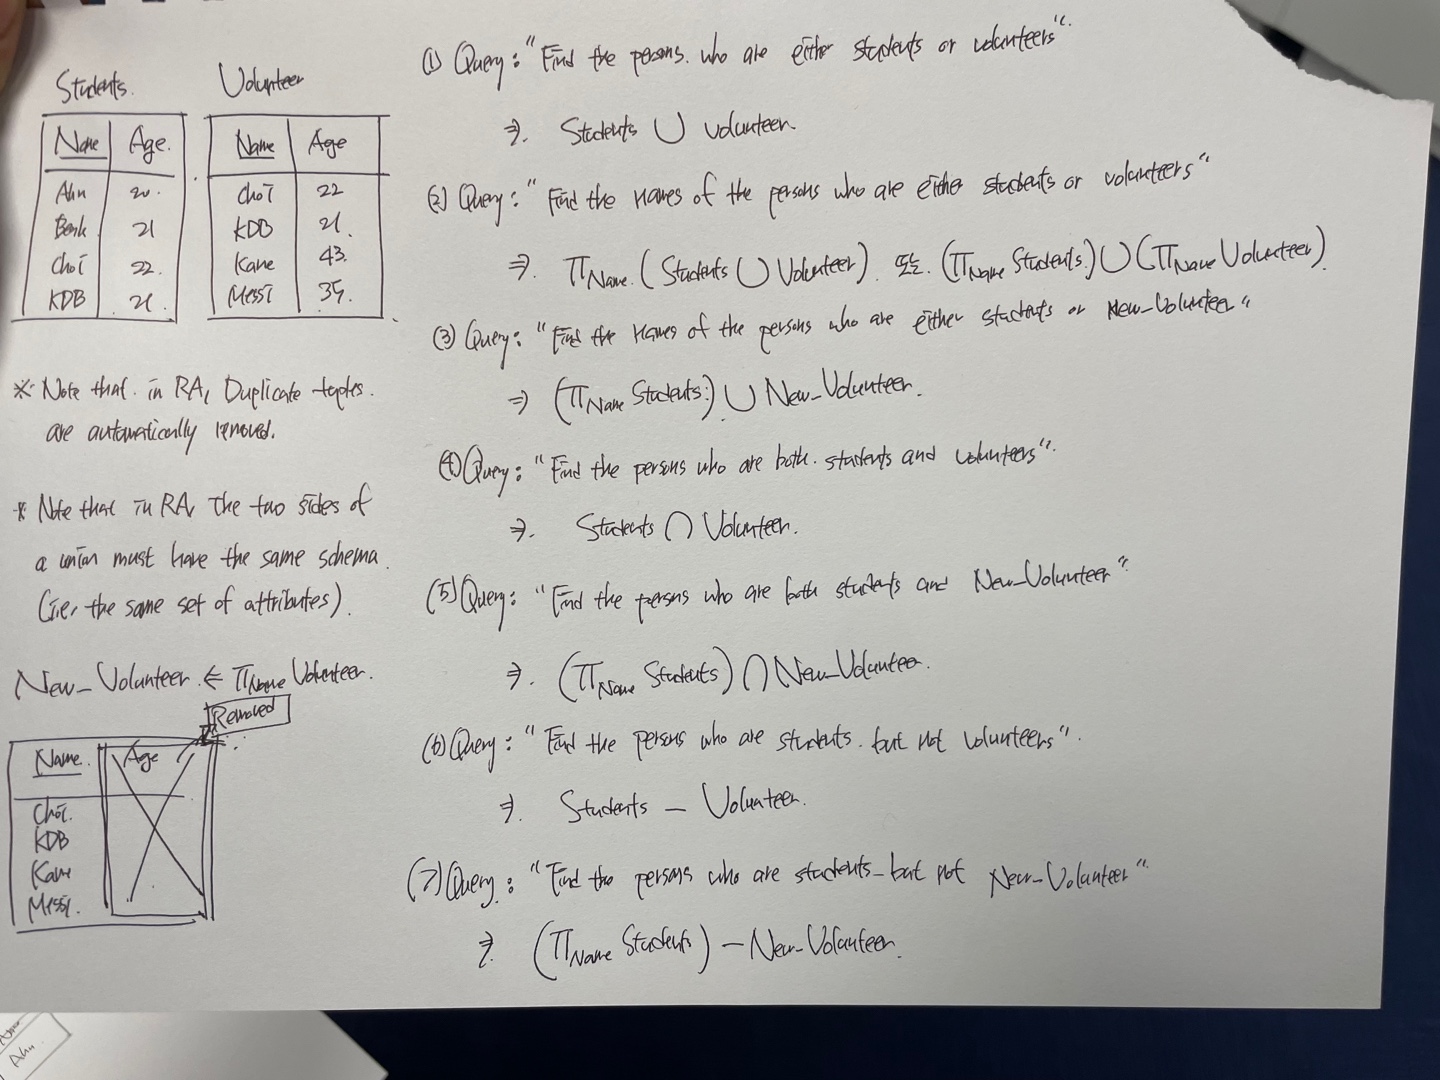 Students.
Name Age.
Ahn 20.
Berk 21
Choi 22.
KDB 21.
Volunteer
Name Age
Choi 22
KDB 21.
Kane 43.
Messi 35.
※ Note that in RA, Duplicate tuples.
are automatically removed.
※ Note that in RA, The two sides of
a union must have the same schema.
(i.e, the same set of attributes).
New_Volunteer ← π Name Volunteer.
Removed
Name. Age
Choi.
KDB
Kane
Messi.
(1) Query: "Find the persons. who are either students or volunteers"
⇒. Students ∪ volunteer.
(2) Query: "Find the names of the persons who are either students or volunteers"
⇒. π Name. (Students ∪ Volunteer). 또는. (π Name Students.) ∪ (π Name Volunteer).
(3) Query: "Find the names of the persons who are either students or New_Volunteer"
⇒ (π Name Students.) ∪ New_Volunteer.
(4) Query: "Find the persons who are both. students and volunteers".
⇒. Students ∩ Volunteer.
(5) Query: "Find the persons who are both students and New_Volunteer".
⇒. (π Name Students) ∩ New_Volunteer.
(6) Query: "Find the persons who are students. but not volunteers".
⇒. Students – Volunteer.
(7) Query: "Find the persons who are students_but not New_Volunteer"
⇒. (π Name Students) – New_Volunteer.
Ahn.